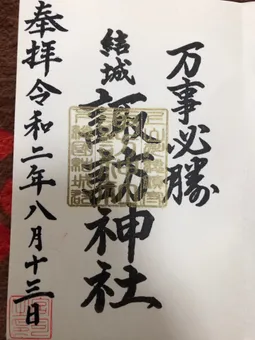 万事必勝
結城
諏訪神社
奉拝令和二年八月十三日